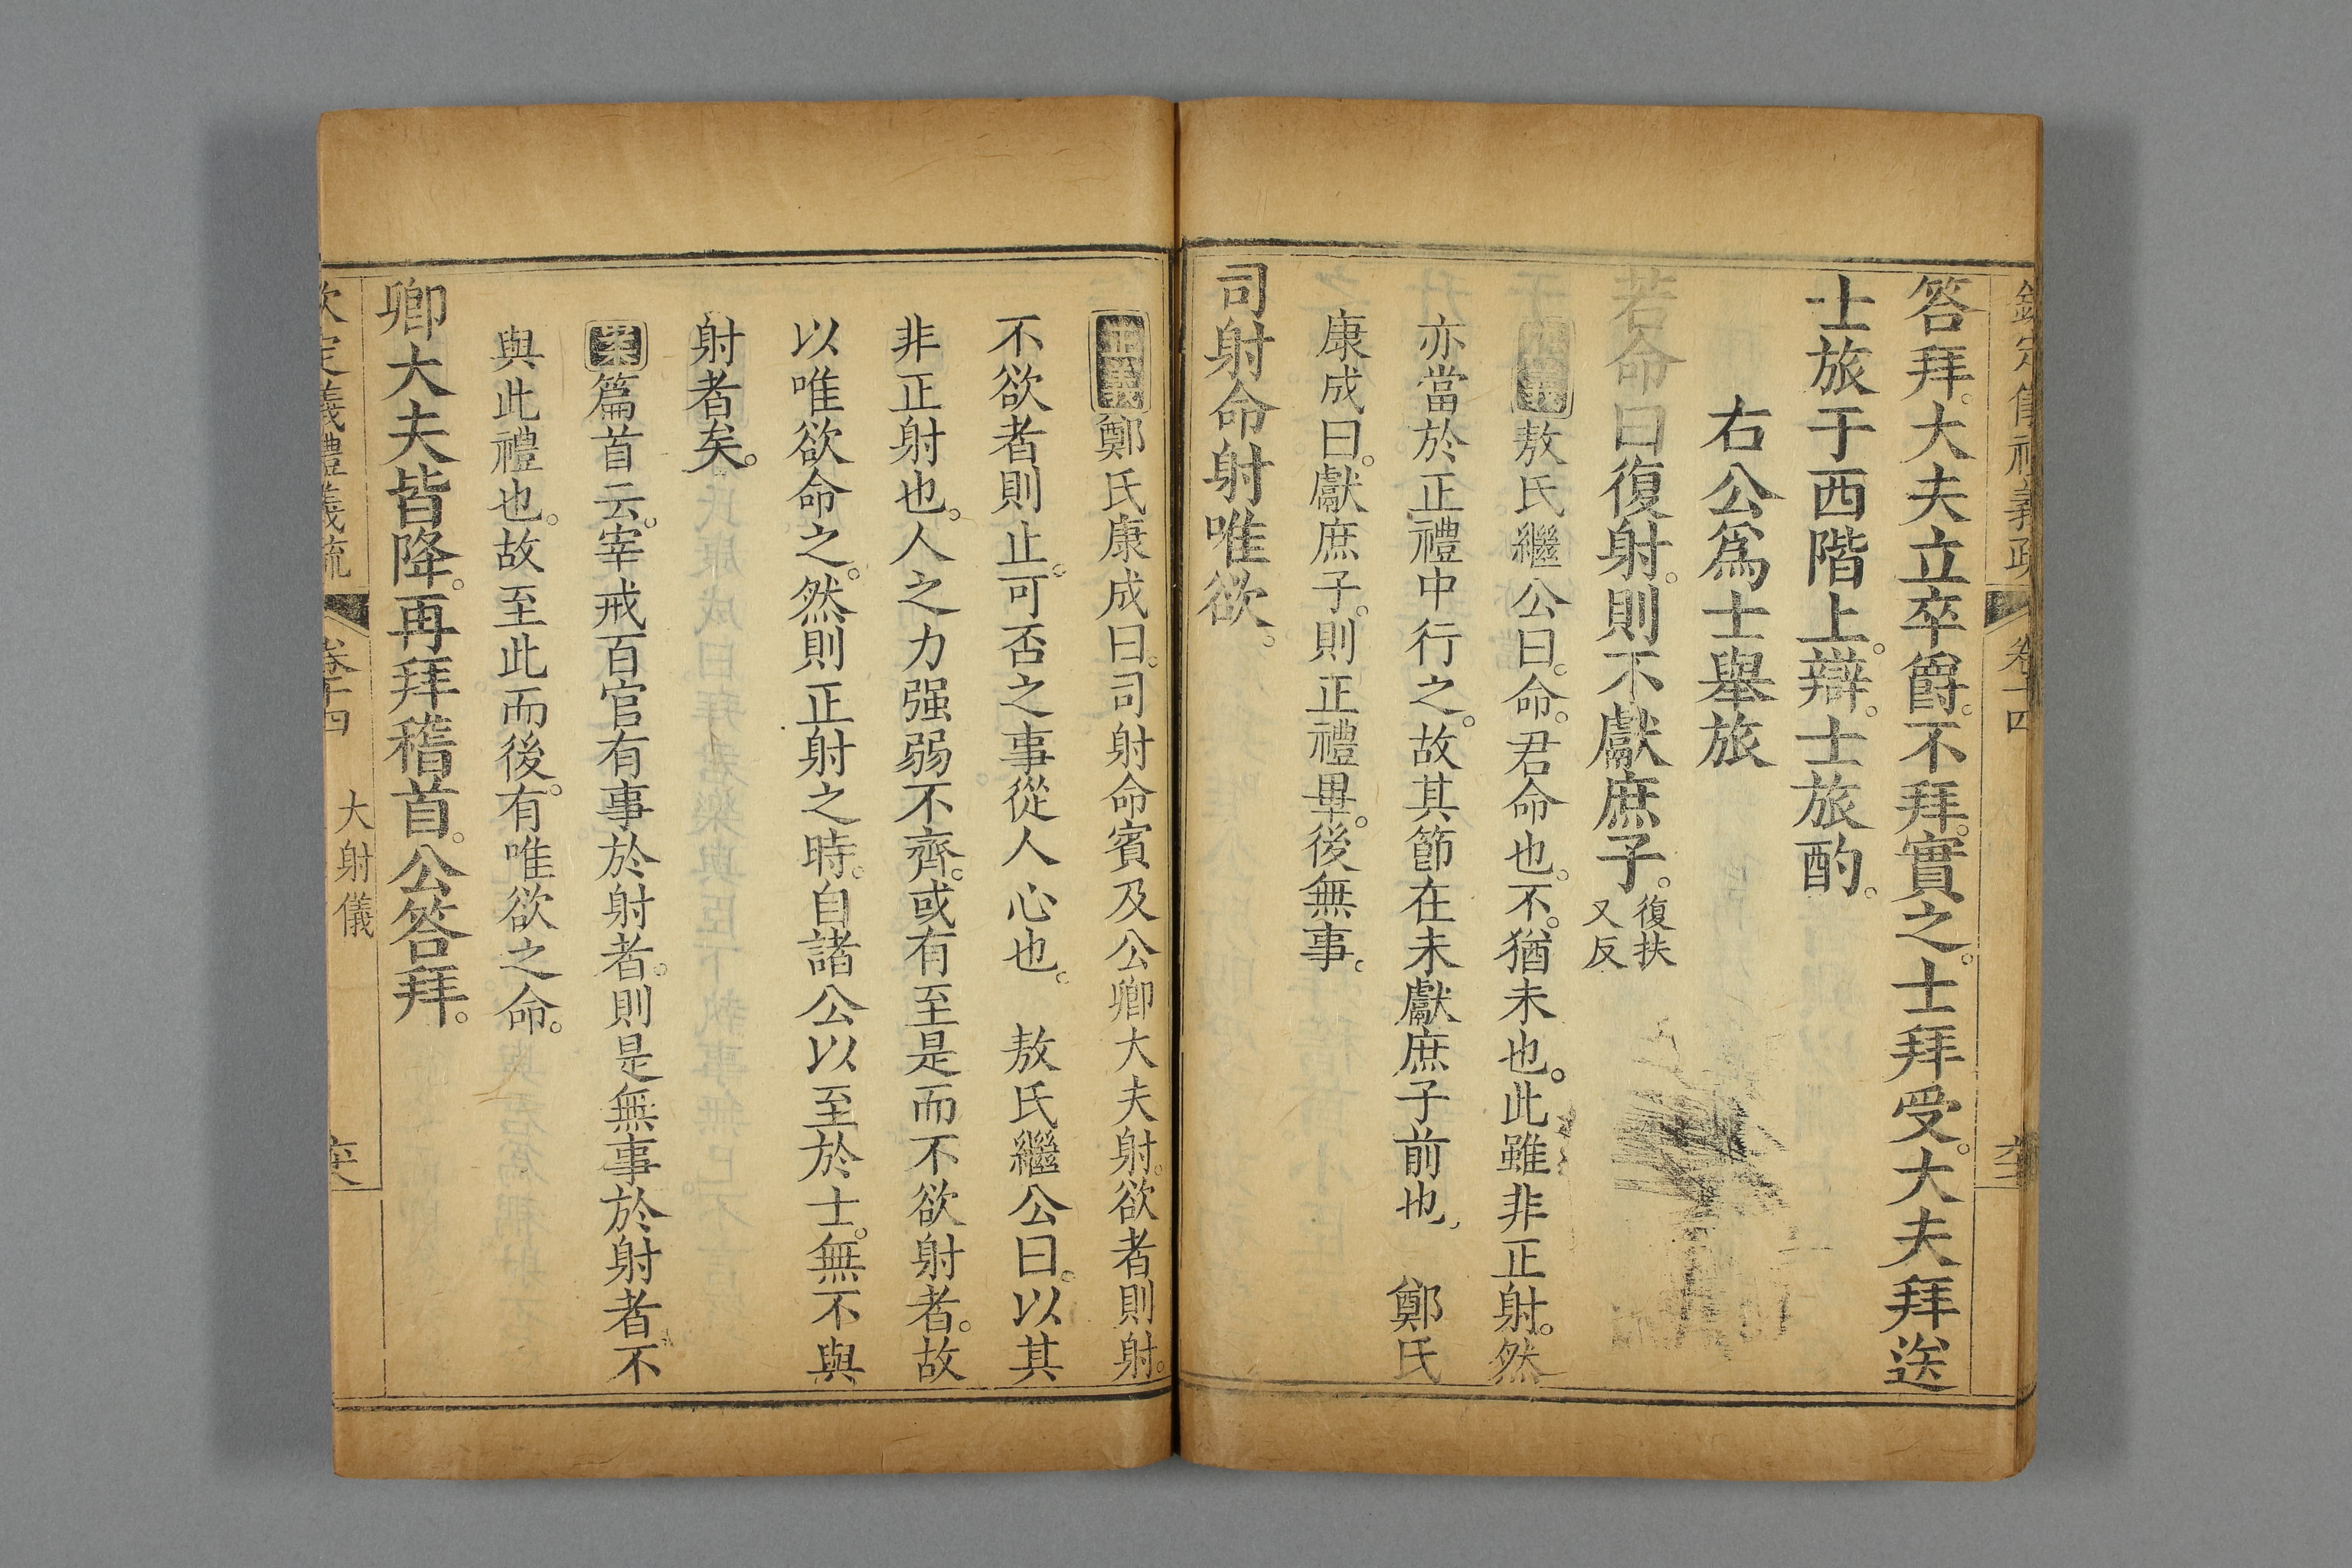 欽定儀禮義疏 卷十四
答拜。大夫立卒爵。不拜。實之。士拜受。大夫拜送
士旅于西階上。辯。士旅酌。
右公爲士舉旅
若命曰復射。則不獻庶子。復扶又反
正義敖氏繼公曰。命。君命也。不。猶未也。此雖非正射。然
亦當於正禮中行之。故其節在未獻庶子前也。 鄭氏
康成曰。獻庶子。則正禮畢。後無事。
司射命射唯欲。
正義鄭氏康成曰。司射命賓及公卿大夫射。欲者則射。
不欲者則止。可否之事從人心也。 敖氏繼公曰。以其
非正射也。人之力强弱不齊。或有至是而不欲射者。故
以唯欲命之。然則正射之時。自諸公以至於士。無不與
射者矣。
案篇首云。宰戒百官有事於射者。則是無事於射者。不
與此禮也。故至此而後。有唯欲之命。
卿大夫皆降。再拜稽首。公答拜。
欽定儀禮義疏 卷十四 大射儀